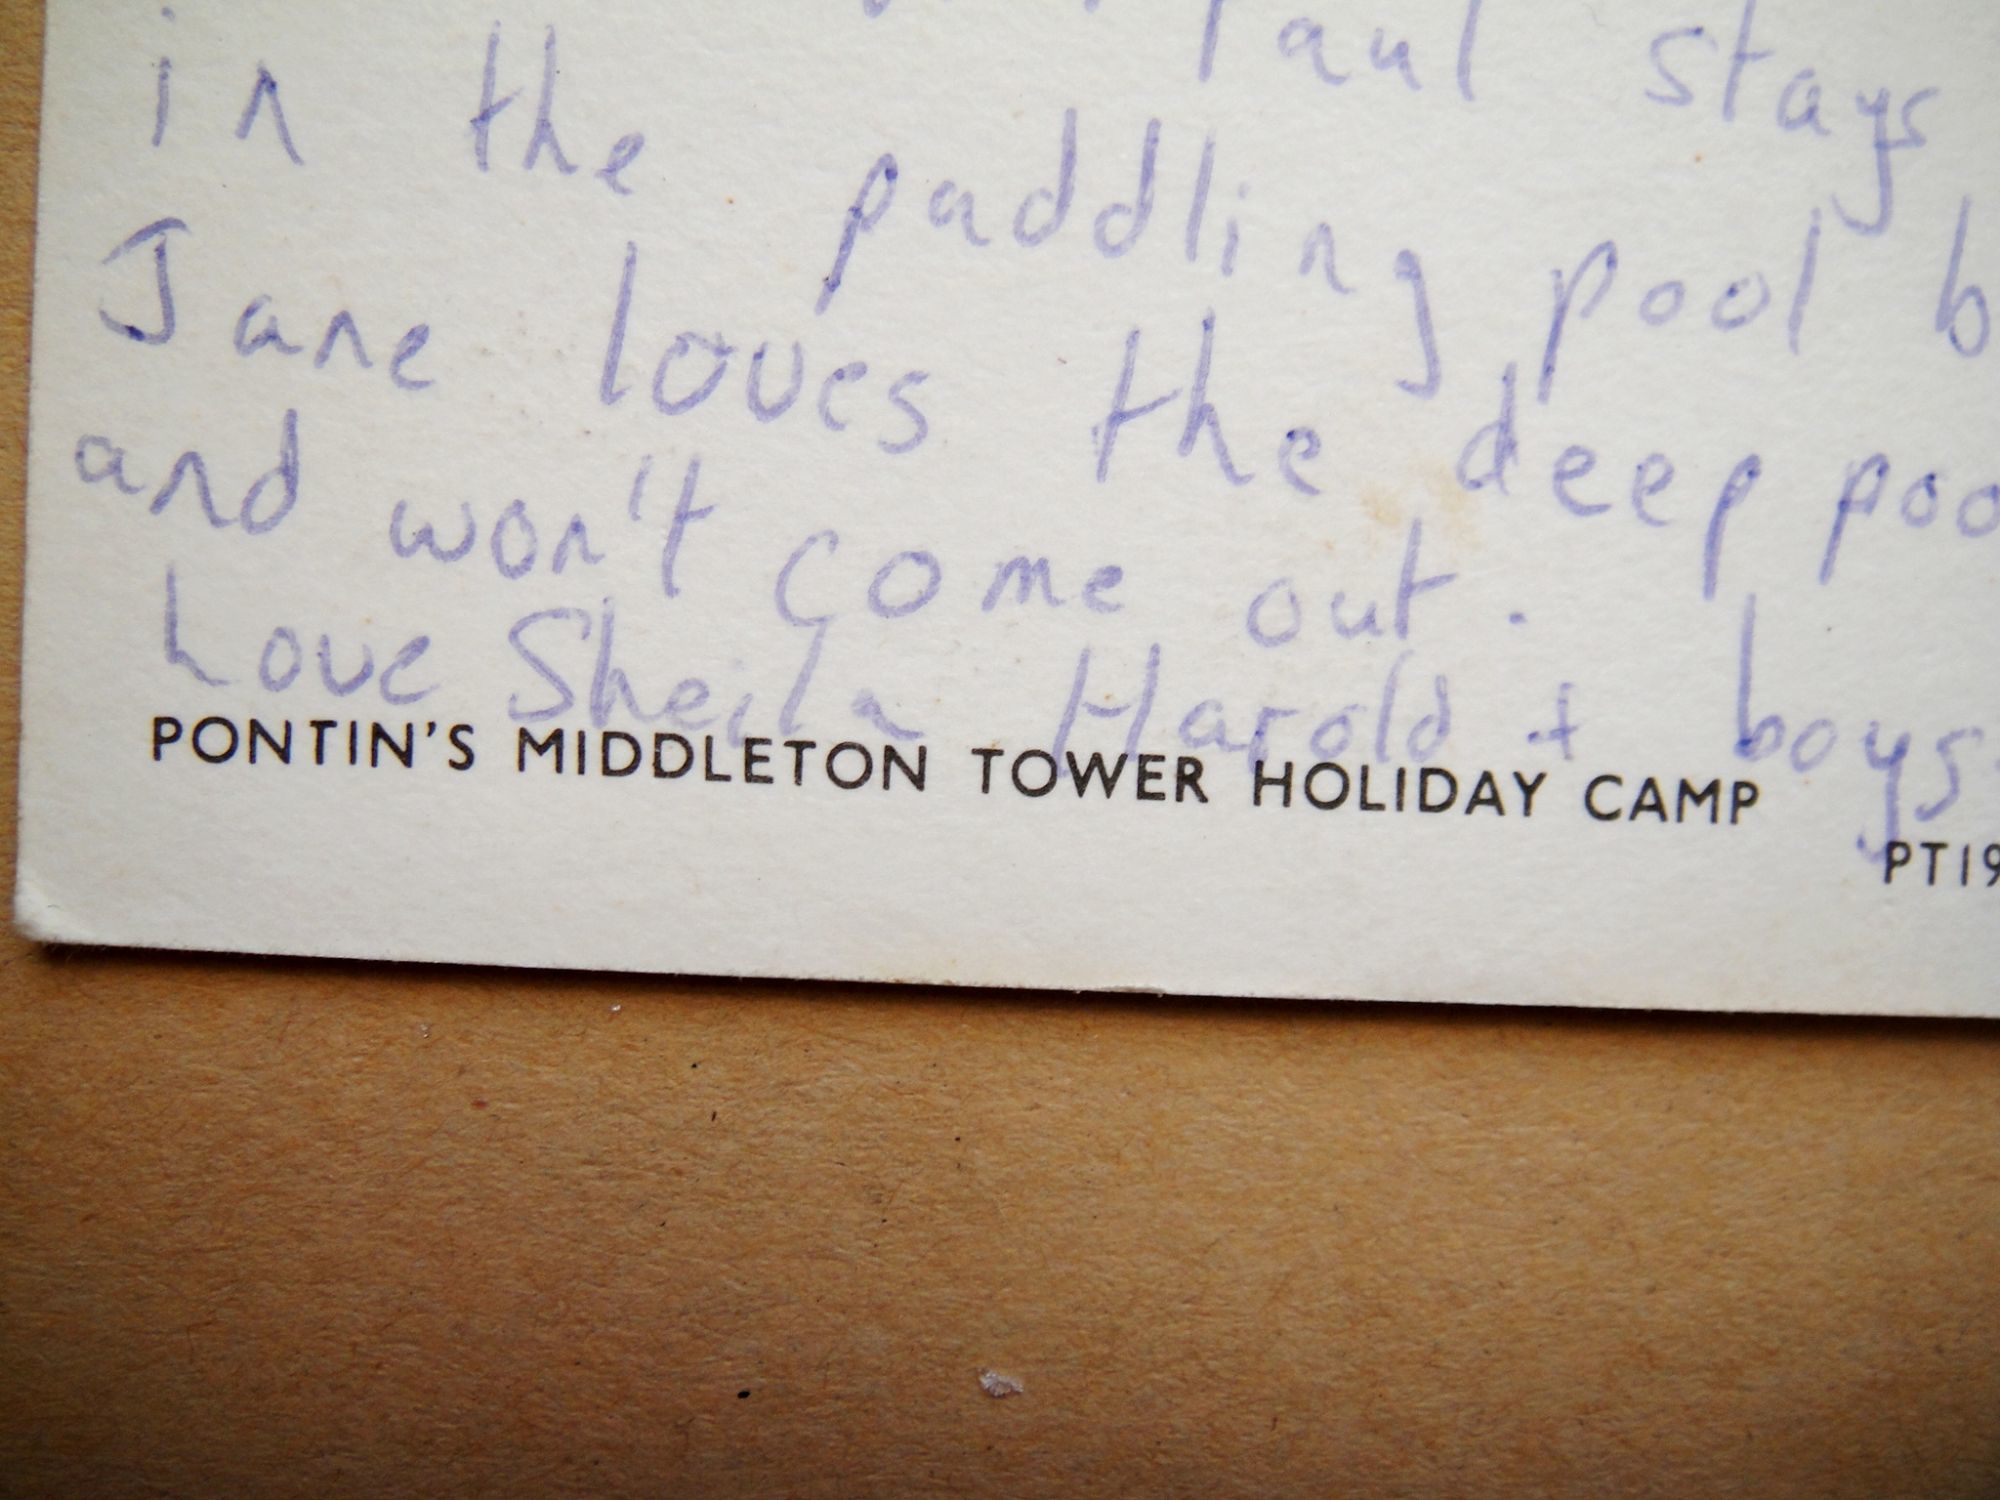 Paul stays
in the paddling pool b
Jane loves the deep poo
and won't come out.
Love Sheila Harold + boys.
PONTIN'S MIDDLETON TOWER HOLIDAY CAMP
PT19